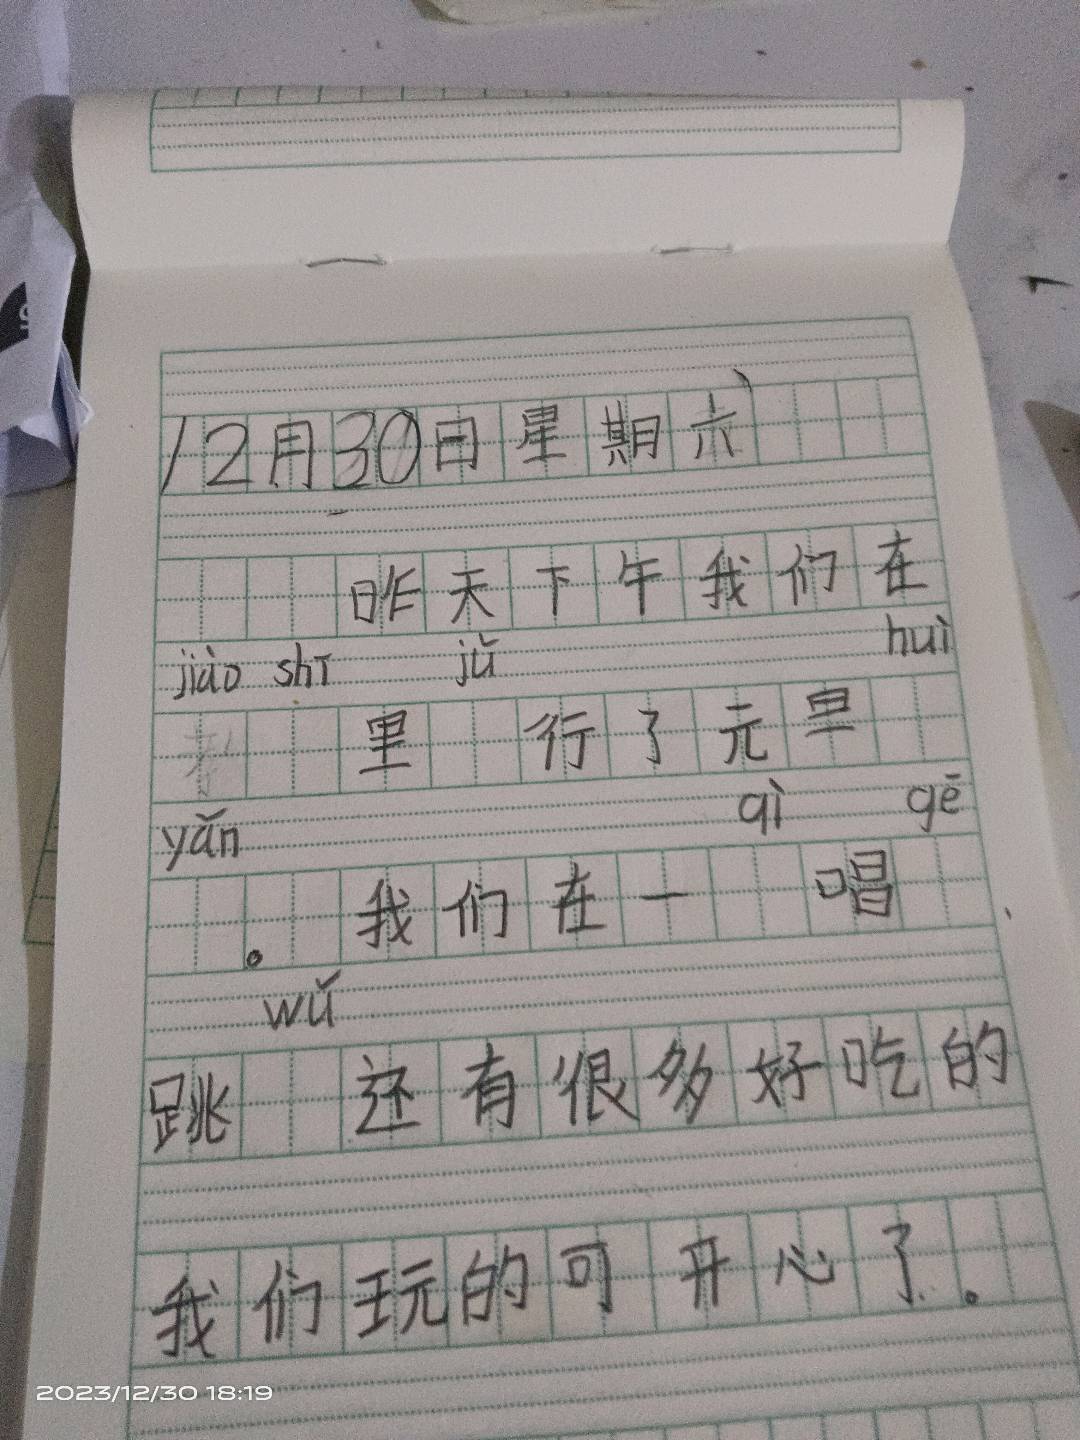 12月30日星期六
昨天下午我们在
jiào shī jǔ huì
里行了元里
yǎn qì gē
。我们在一唱
wǔ
跳还有很多好吃的
我们玩的可开心了。
2023/12/30 18:19